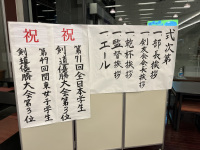 式次第
一部長挨拶
一剣友会会長挨拶
一乾杯挨拶
一監督挨拶
一エール
祝
第71回全日本学生
剣道優勝大会第3位
祝
第49回関東女子学生
剣道優勝大会第3位